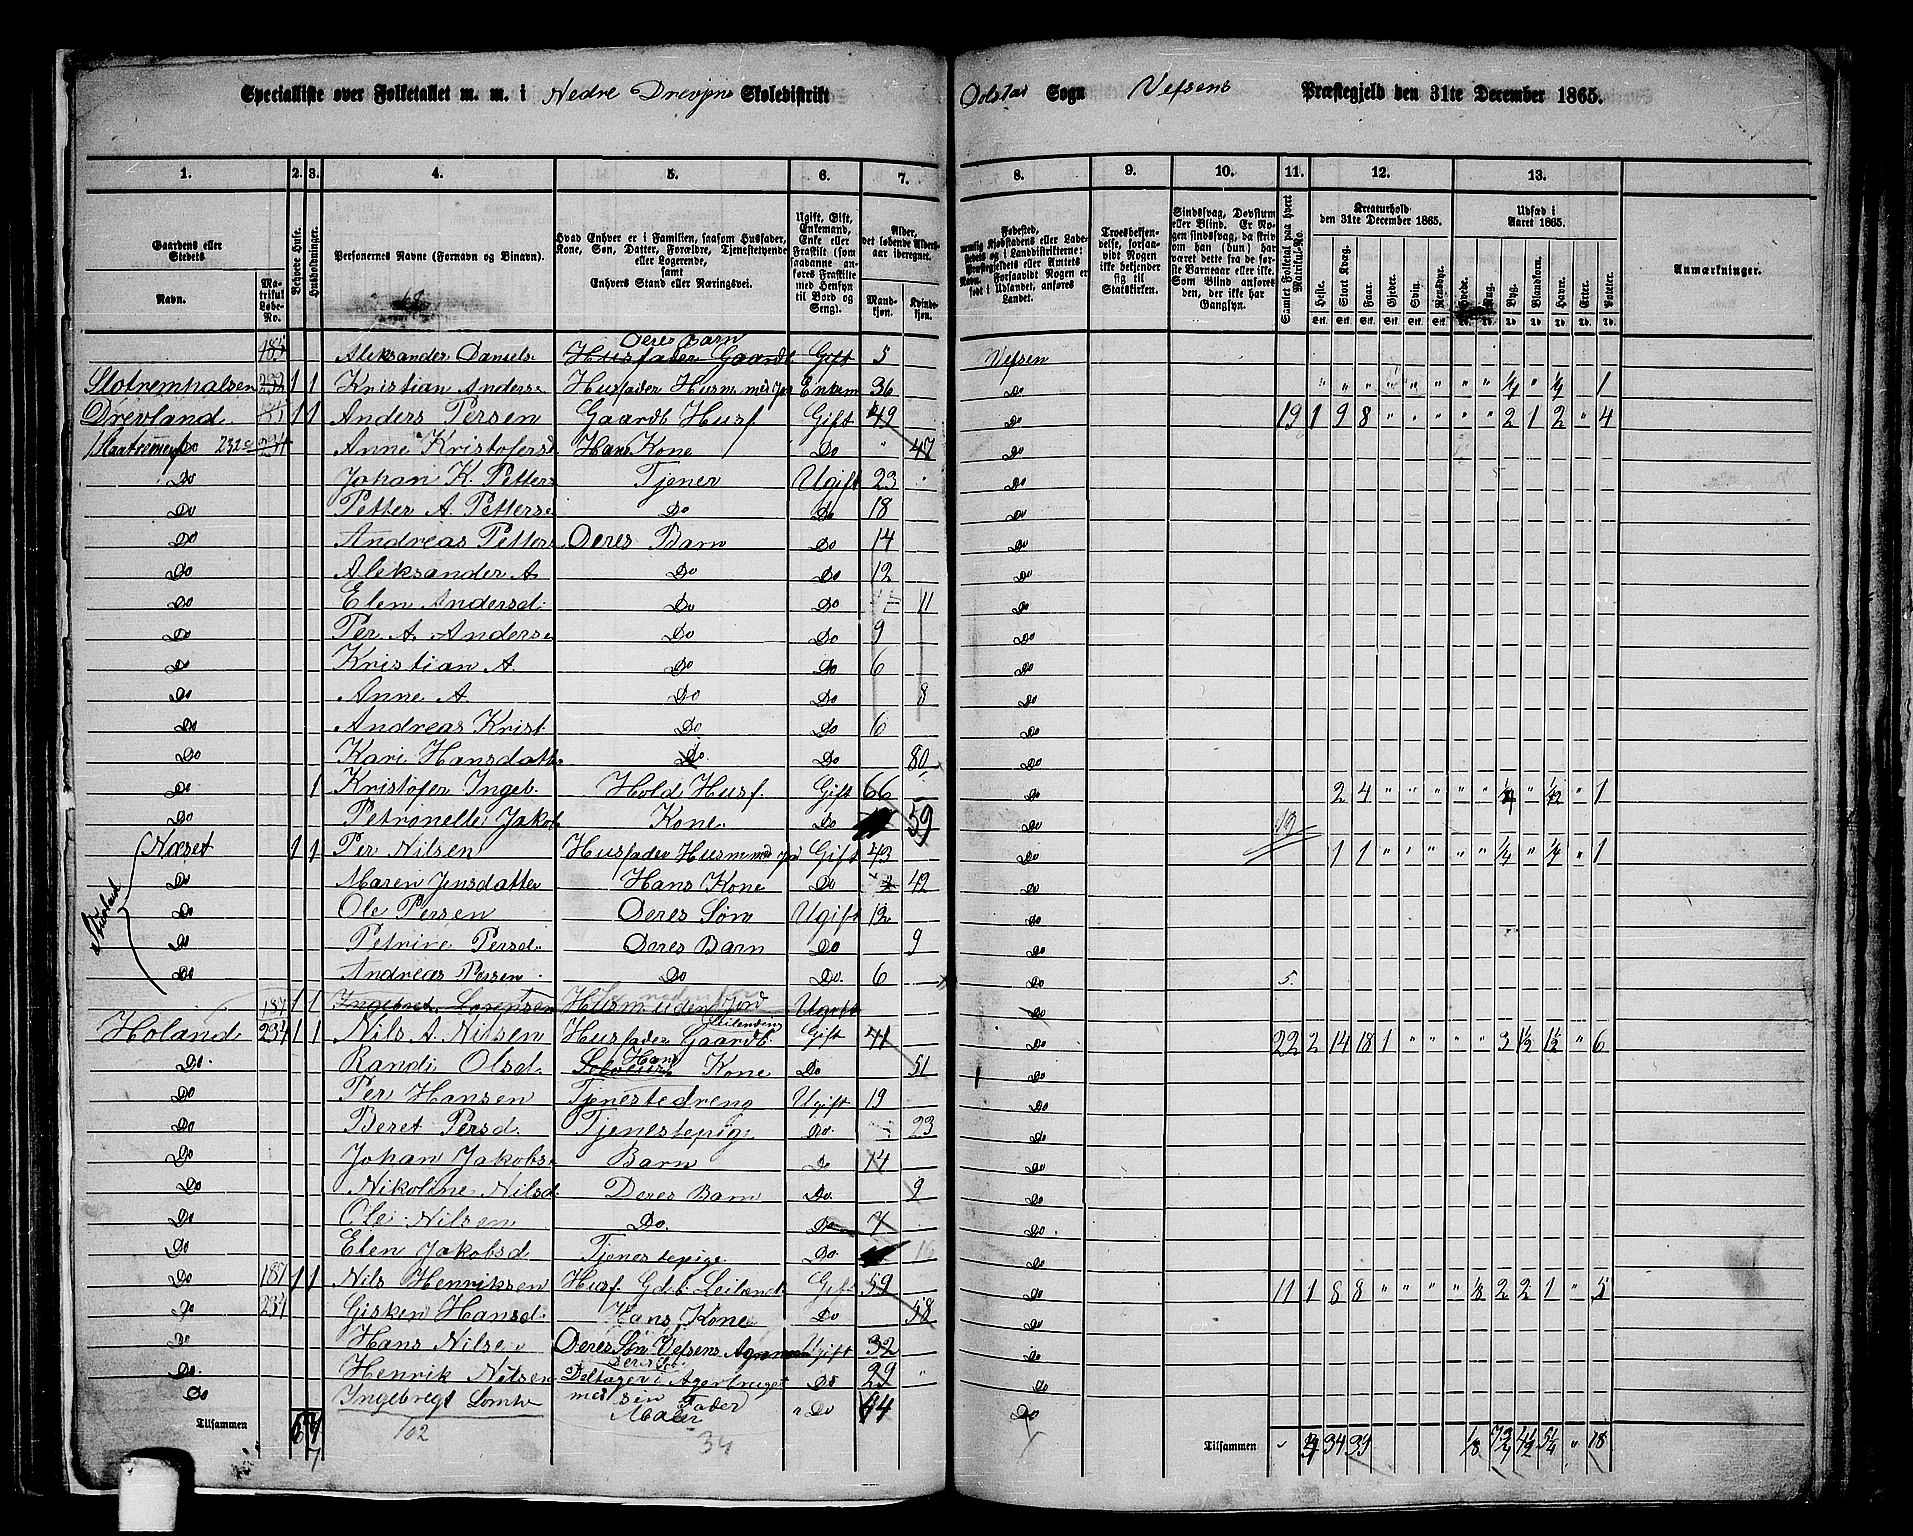 Specialliste over Folketallet m. m. i Nedre Drevjen Skoledistrikt Sogn Vefsens Præstegjeld den 31te December 1865.
1. 2. 3. 4. 5. 6. 7. 8. 9. 10. 11. 12. 13.
Gaardens eller Stedets Navn. Matrikul Løbe-No. Beboede Huse. Husholdninger. Personernes Navne (Fornavn og Binavn).
Hvad Enhver er i Familien, saasom Husfader, Kone, Søn, Datter, Forældre, Tjenestetyende eller Logerende, samt Enhvers Stand eller Næringsvei.
Ugift, Gift, Enkemand, Enke eller Fraskilt (som saadanne anføres Fraskilte med Hensyn til Bord og Seng).
Alder, det løbende Aldersaar iberegnet. Mandkjøn. Kvindekjøn.
Troesbekjendelse, forsaavidt Nogen ikke bekjender sig til Statskirken.
Sindssvag, Døvstum eller Blind.
Samlet Folketal paa hvert Matrikul-No.
Kreaturhold den 31te December 1865. Heste. Stort Kvæg. Faar. Gjeder. Svin. Rensdyr.
Udsæd i Aaret 1865. Hvede. Rug. Byg. Blandkorn. Havre. Erter. Poteter.
Anmærkninger.
185 Aleksander Daniels. Deres Barn Husfader Gaardb Gift 5 Vefsen
1 1 Kristian Anderse Husfader Husm med Jord Enkem 36 Do " " " " " " " " 1/4 " 1/4 " 1
Drevland 1 1 Anders Persen Gaardb Husf Gift 49 Do 19 1 9 8 " " " " " 2 1 2 " 4
Do Anne Kristofersd Hans Kone Do " 47 Do
Do Johan K. Petters Tjener Ugift 23 Do
Do Petter A. Petterse Do Do 18 Do
Do Andreas Petters Deres Barn Do 14 Do
Do Aleksander A. Do Do 12 Do
Do Elen Andersd. Do Do 11 Do
Do Per A. Anderse Do Do 9 Do
Do Kristian A. Do Do 6 Do
Do Anne A. Do Do 8 Do
Do Andreas Krist. Do Do 6 Do
Do Kari Hansdatt. Do Do 80 Do
Do 1 Kristofer Ingeb. Hold Husf. Gift 66 Do 2 4 " " " " " 1/2 " 1
Do Petronelle Jakob Kone Do 59 Do 19
Næset 1 1 Per Nilsen Husfader Husm med Jord Gift 43 Do 1 1 " " " " " 1/4 " 1/4 " 1
Do Maren Jensdatter Hans Kone Do 42 Do
Do Ole Persen Deres Søn Ugift 12 Do
Do Petrine Persd. Deres Barn Do 9 Do
Do Andreas Persen Do Do. 6 Do 5.
187 1 1 Ingebret Lorensen Husm uden Jord Ugift Do
Holand 234 1 1 Nils A. Nilsen Husfader Gaardb. Leilending Gift 41 Do 22 2 14 18 1 " " " " 3 1/2 1/2 " 6
Do. Randi Olsd. Hans Kone Do 51 Do
Do Per Hansen Tjenestedreng Ugift 19 Do
Do Beret Persd. Tjenestepig. Do. 23 Do
Do Johan Jakobs. Barn Do 14 Do
Do Nikoline Nilsd. Deres Barn Do. 9 Do
Do Ole Nilsen Do. Do 7 Do
Do Elen Jakobsd Tjenestepige. Do 16 Do
Do 187 1 1 Nils Henriksen Husf. Gdb. Leilend. Gift 59 Do 11 1 8 8 " " " " 1/8 2 2 1 " 5
Do 234 Gisken Hansd. Hans Kone Do 58 Do
Do Hans Nilsen Deres Søn Ugift 32 Do
Do. Henrik Nilsen Deltager i Agerbruget med sin Fader Do 29 " Do
Do Ingebregt " Do 44 Do
Tilsammen 102 34 Tilsammen 34 39 1/8 7 3/4 4 1/2 5 1/4 " 18